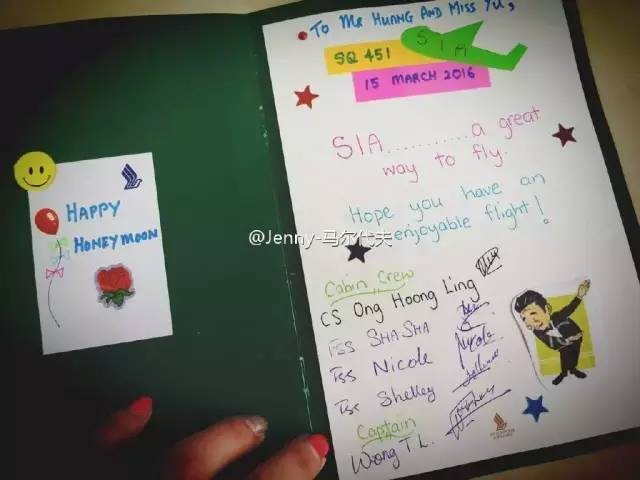 HAPPY
HONEYMOON
TO MR HUANG AND MISS YU,
SIA
SQ 451
15 MARCH 2016
SIA...........a great
way to fly.
Hope you have an
enjoyable flight!
@Jenny-马尔代夫
Cabin Crew
CS Ong Hoong Ling
FSS SHASHA
FSS Nicole
FSS Shelley
Captain
Wong T L.
SINGAPORE
AIRLINES